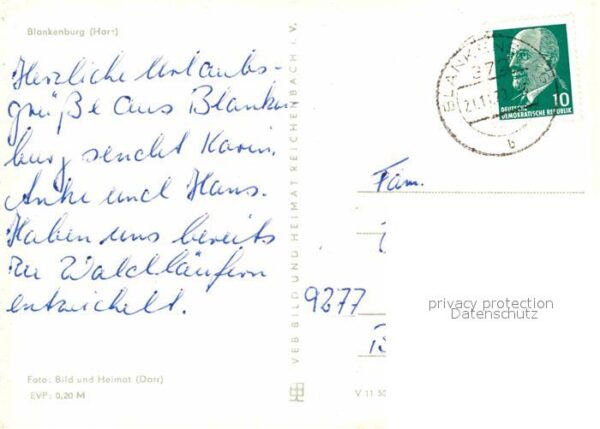 Blankenburg (Harz)
Herzliche Urlaubs-
grüße aus Blanken
burg sendet Karin,
Anke und Hans.
Haben uns bereits
zu Waldläufern
entwickelt.
Foto: Bild und Heimat (Dorr)
EVP: 0,20 M
VEB BILD UND HEIMAT REICHENBACH i. V.
BLANKEN
372
b
DEUTSCHE
DEMOKRATISCHE REPUBLIK
10
Fam.
9277
privacy protection
Datenschutz
V 11 50